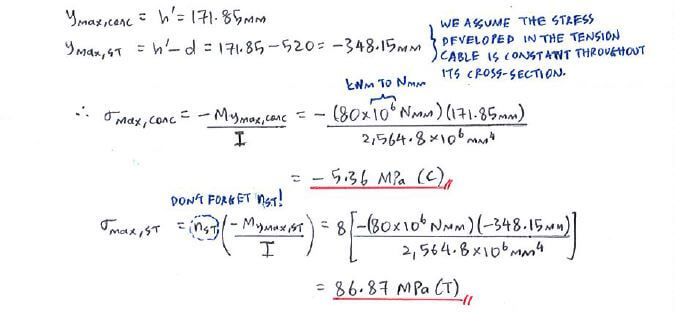 y max,conc = h' = 171.85mm
y max,ST = h'-d = 171.85-520 = -348.15mm
WE ASSUME THE STRESS
DEVELOPED IN THE TENSION
CABLE IS CONSTANT THROUGHOUT
ITS CROSS-SECTION.
kNm TO Nmm
∴ σmax,conc = -My max,conc / I = -(80×10⁶ Nmm)(171.85mm) / 2,564.8×10⁶ mm⁴
= -5.36 MPa (C)
DON'T FORGET nST!
σmax,ST = nST(-My max,ST / I) = 8[-(80×10⁶ Nmm)(-348.15mm) / 2,564.8×10⁶ mm⁴]
= 86.87 MPa (T)